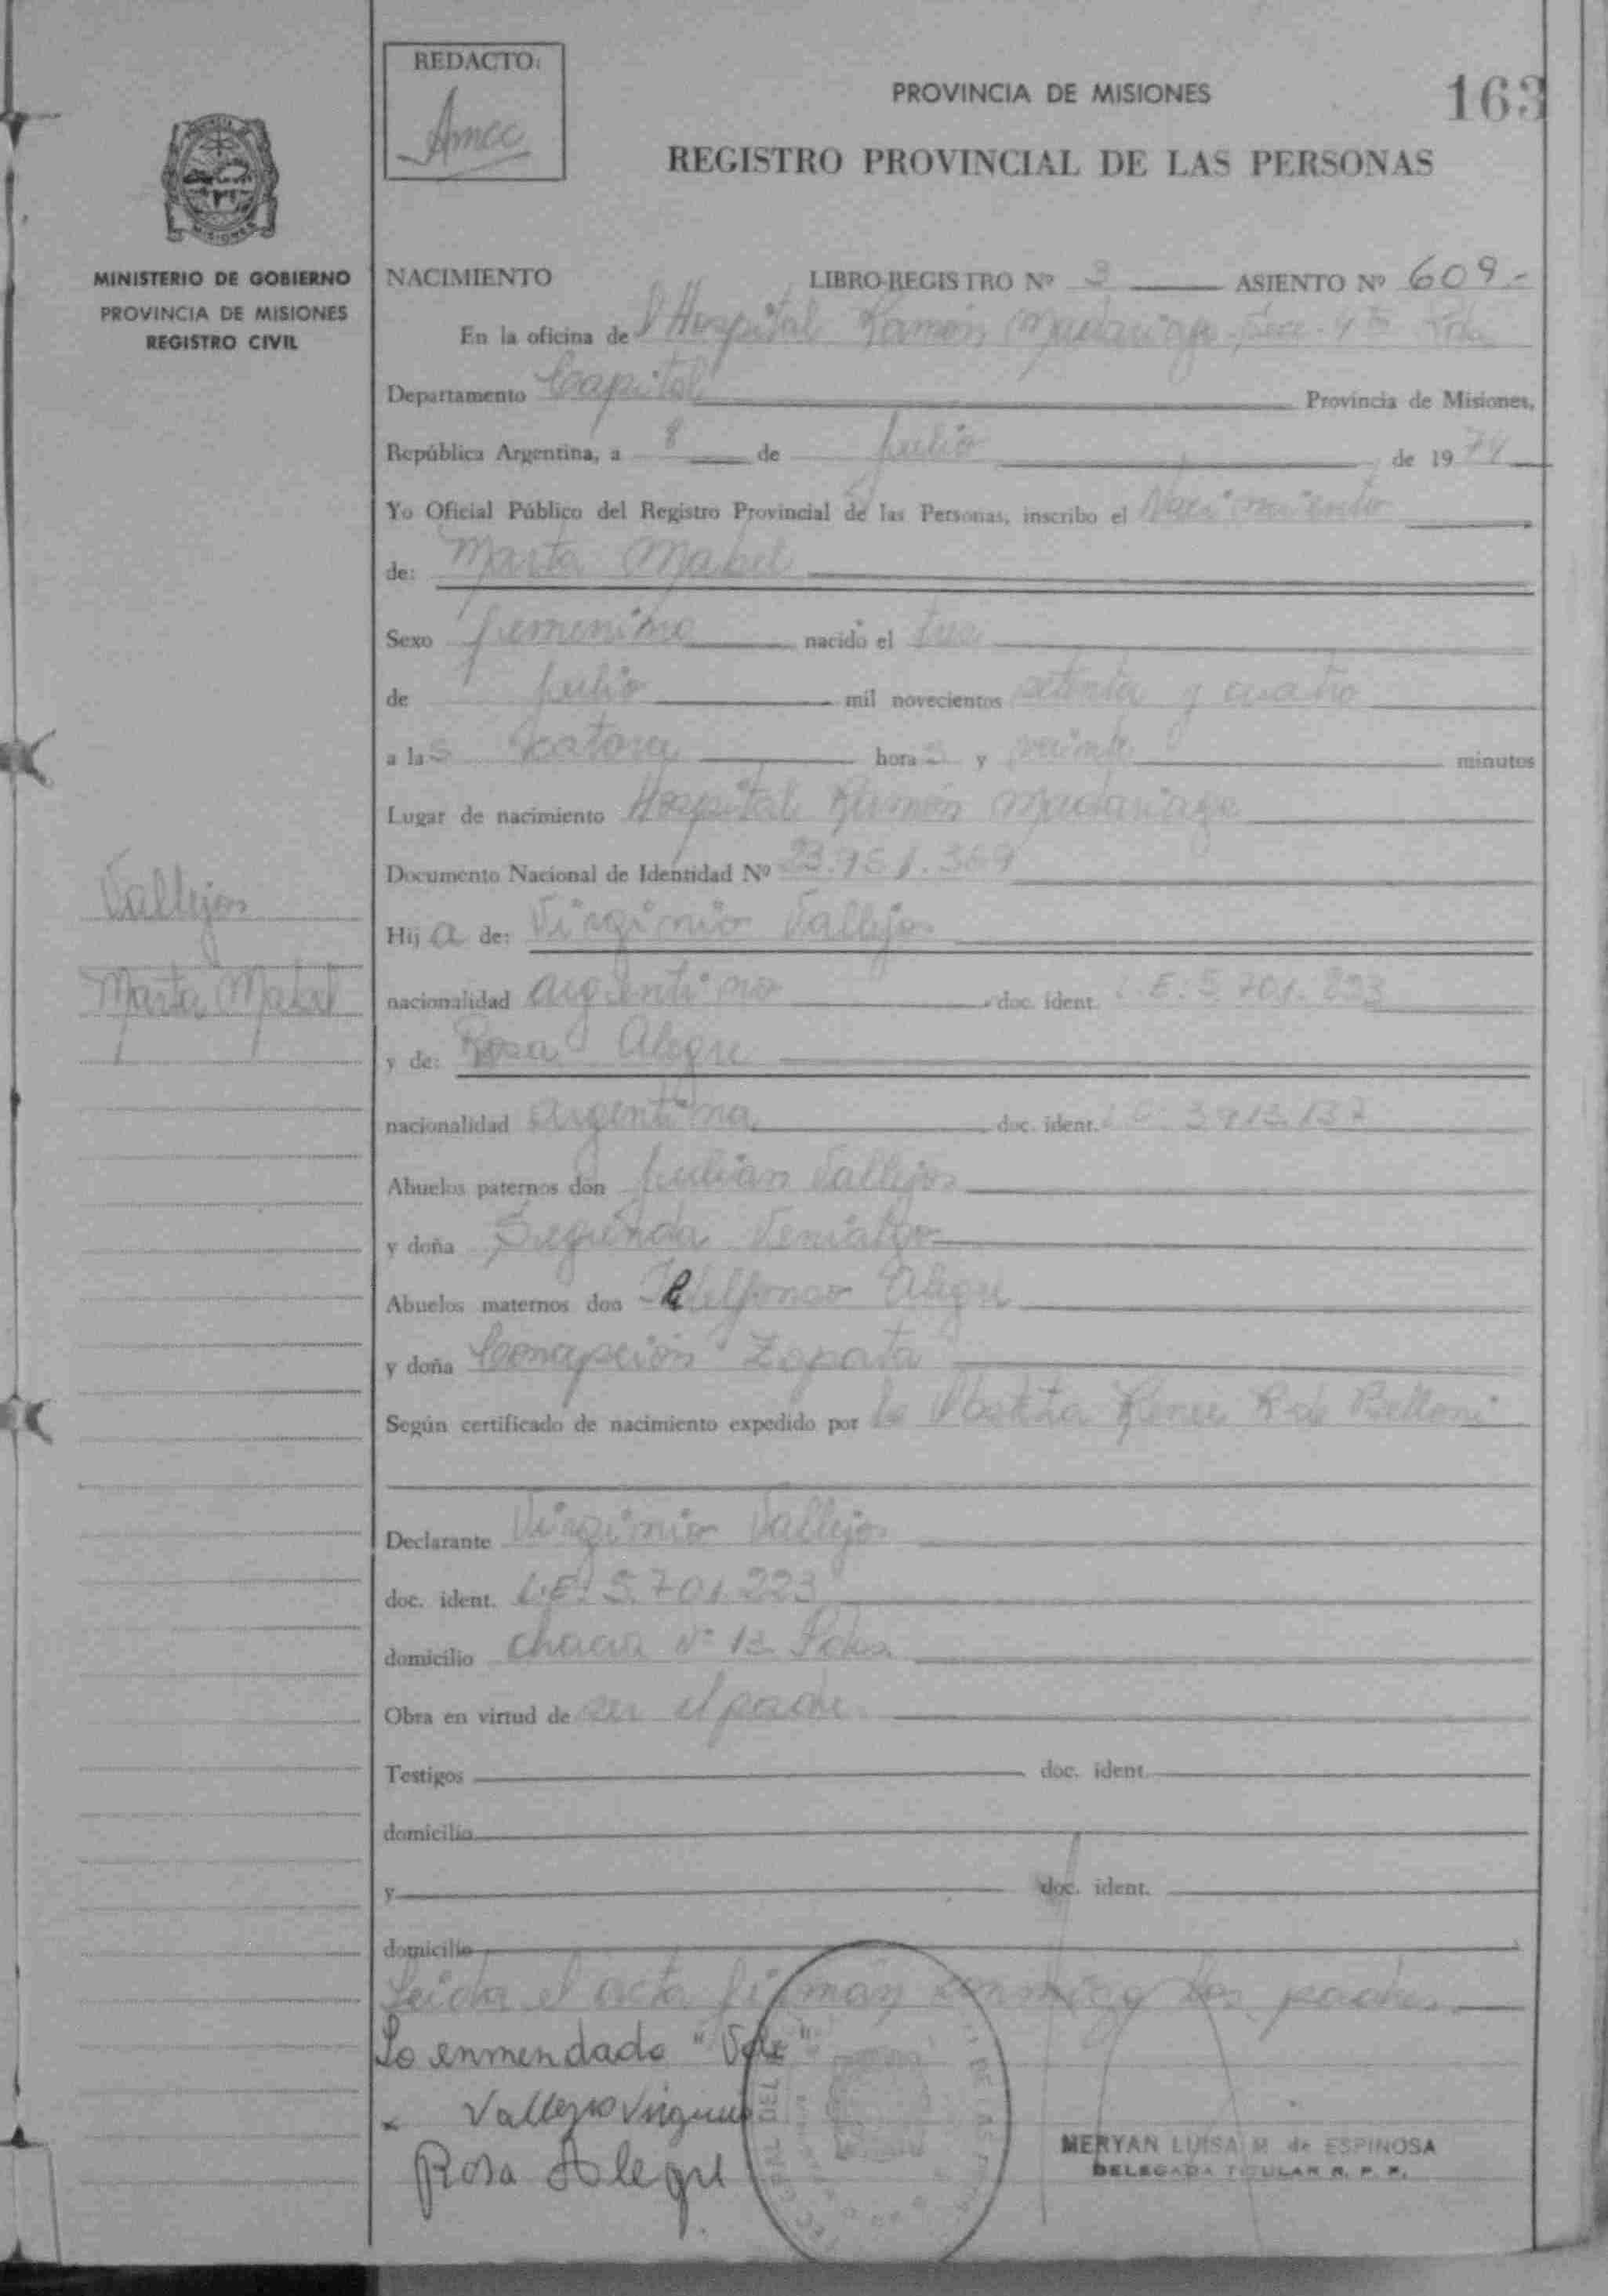 REDACTO:
Amec
PROVINCIA DE MISIONES
163
REGISTRO PROVINCIAL DE LAS PERSONAS
MISIONES
MINISTERIO DE GOBIERNO
PROVINCIA DE MISIONES
REGISTRO CIVIL
NACIMIENTO LIBRO-REGISTRO Nº 3 ASIENTO Nº 609.-
En la oficina de l Hospital Ramón Madariaga
Departamento Capital Provincia de Misiones,
República Argentina, a 8 de julio de 1974
Yo Oficial Público del Registro Provincial de las Personas, inscribo el Nacimiento
de: Marta Mabel
Sexo femenino nacido el tres
de julio mil novecientos setenta y cuatro
a las catorce horas y veinte minutos
Lugar de nacimiento Hospital Ramón Madariaga
Documento Nacional de Identidad Nº 23.951.369
Vallejos
Marta Mabel
Hija de: Virginio Vallejos
nacionalidad argentino doc. ident. L.E. 5.701.223
y de: Rosa Alegre
nacionalidad argentina doc. ident. 3.913.137
Abuelos paternos don Julian Vallejos
y doña Segunda Venialgo
Abuelos maternos don Ildelfonso Alegre
y doña Concepción Zapata
Según certificado de nacimiento expedido por la Obstetra Renee R de Belloni
Declarante Virginio Vallejos
doc. ident. L.E. 5.701.223
domicilio chacra Nº 13 Pdas.
Obra en virtud de ser el padre.
Testigos doc. ident.
domicilio
y doc. ident.
domicilio
Leida el acta firman conmigo los padres.
Lo enmendado "Vale"
Vallejos Virginio
Rosa Alegre
MERYAN LUISA M. de ESPINOSA
DELEGADA TITULAR R. P. P.